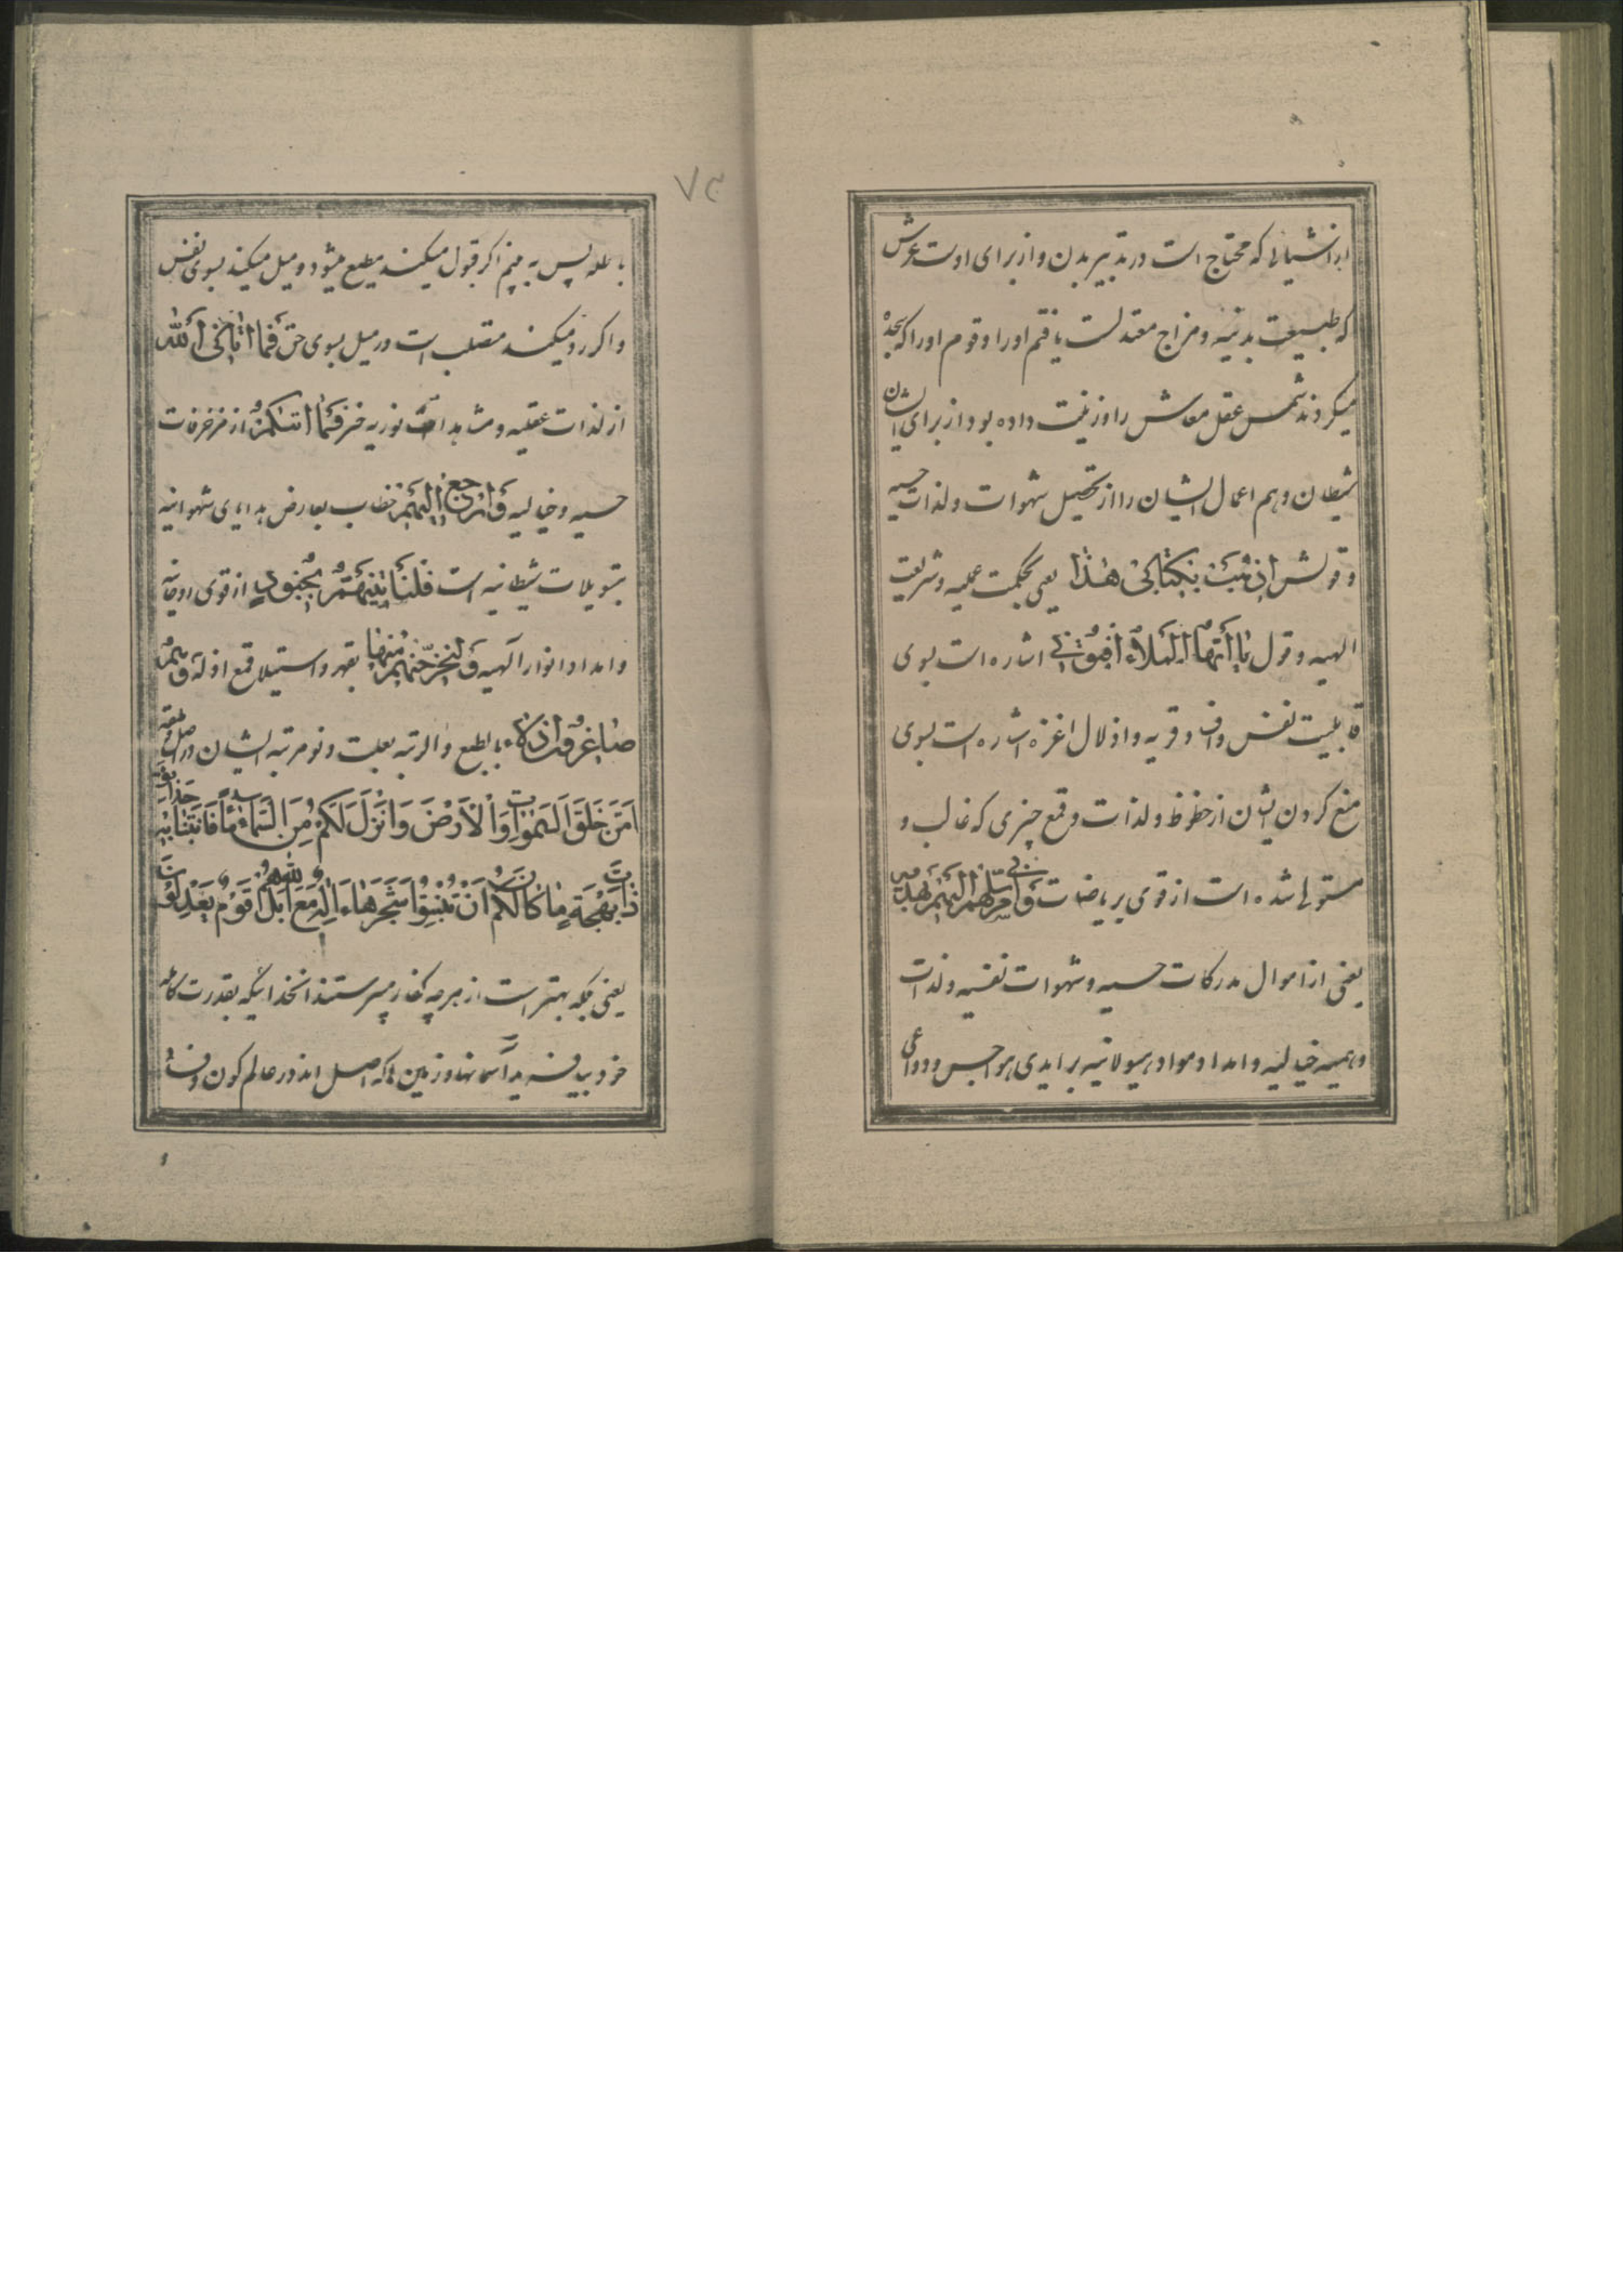 از اشیائی که محتاج است در تدبیر بدن و از برای اوست عرش
که طبیعت بدنیه و مزاج معتدلست یافتم او را و قوم او را که سجده
میکردند شمس عقل معاش را و زینت داده بود از برای ایشان
شیطان وهم اعمال ایشان را از تحصیل شهوات و لذات حسیه
و قولش اذهب بکتابی هذا یعنی بحکمت عملیه و شریعت
الهیه و قول یا ایها الملاء افتونی اشاره است بسوی
قابلیت نفس و افساد قریه و اذلال اعزه اشاره است بسوی
منع کردن ایشان از حظوظ و لذات و قمع چیزی که غالب و
مستولی شده است از قوی بریاضات و انی مرسلة الیهم بهدیة
یعنی از اموال مدرکات حسیه و شهوات نفسیه و لذات
وهمیه خیالیه و امداد مواد هیولانیه بر ایدی هواجس و دواعی
۷۲
باطله پس به بینم اکر قبول میکند مطیع میشود و میل میکند بسوی نفس
و اکر رد میکند متصلب است در میل بسوی حق فما اتانی الله
از لذات عقلیه و مشاهدات نوریه خیر مما اتیکم از مزخرفات
حسیه و خیالیه و ارجع الیهم خطاب بعارض هدایای شهوانیه
بتسویلات شیطانیه است فلناتینهم بجنود از قوی روحانیه
و امداد انوار الهیه و لنخرجنهم منها بقهر و استیلا و قمع اذلة و هم
صاغرون بالطبع و الرتبه بعلت دنو مرتبه ایشان در اصل خلقه
امن خلق السموات و الارض و انزل لکم من السماء ماء فانبتنا به حدائق
ذات بهجة ما کان لکم ان تنبتوا شجرها ءاله مع الله بل هم قوم یعدلون
یعنی بلکه بهتر است از هرچه کفار میپرستند انخدائیکه بقدرت کامله
خود بیافرید آسمانها و زمین را که اصل اند در عالم کون و فساد